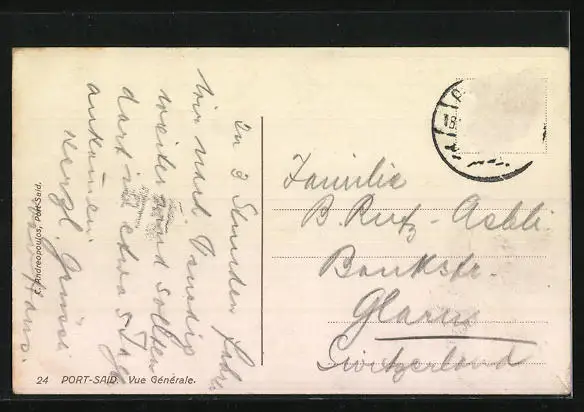 In 3 Stunden fahren
wir nach Venedig
weiter und sollten
dort in etwa 5 Tg.
ankommen.
Herzl. Grüsse
Hans.
Familie
B. Rutz-Aebli
Bankstr.
Glarus
Switzerland
E. Andreopoulos, Port-Said.
24 PORT-SAID. Vue Générale.